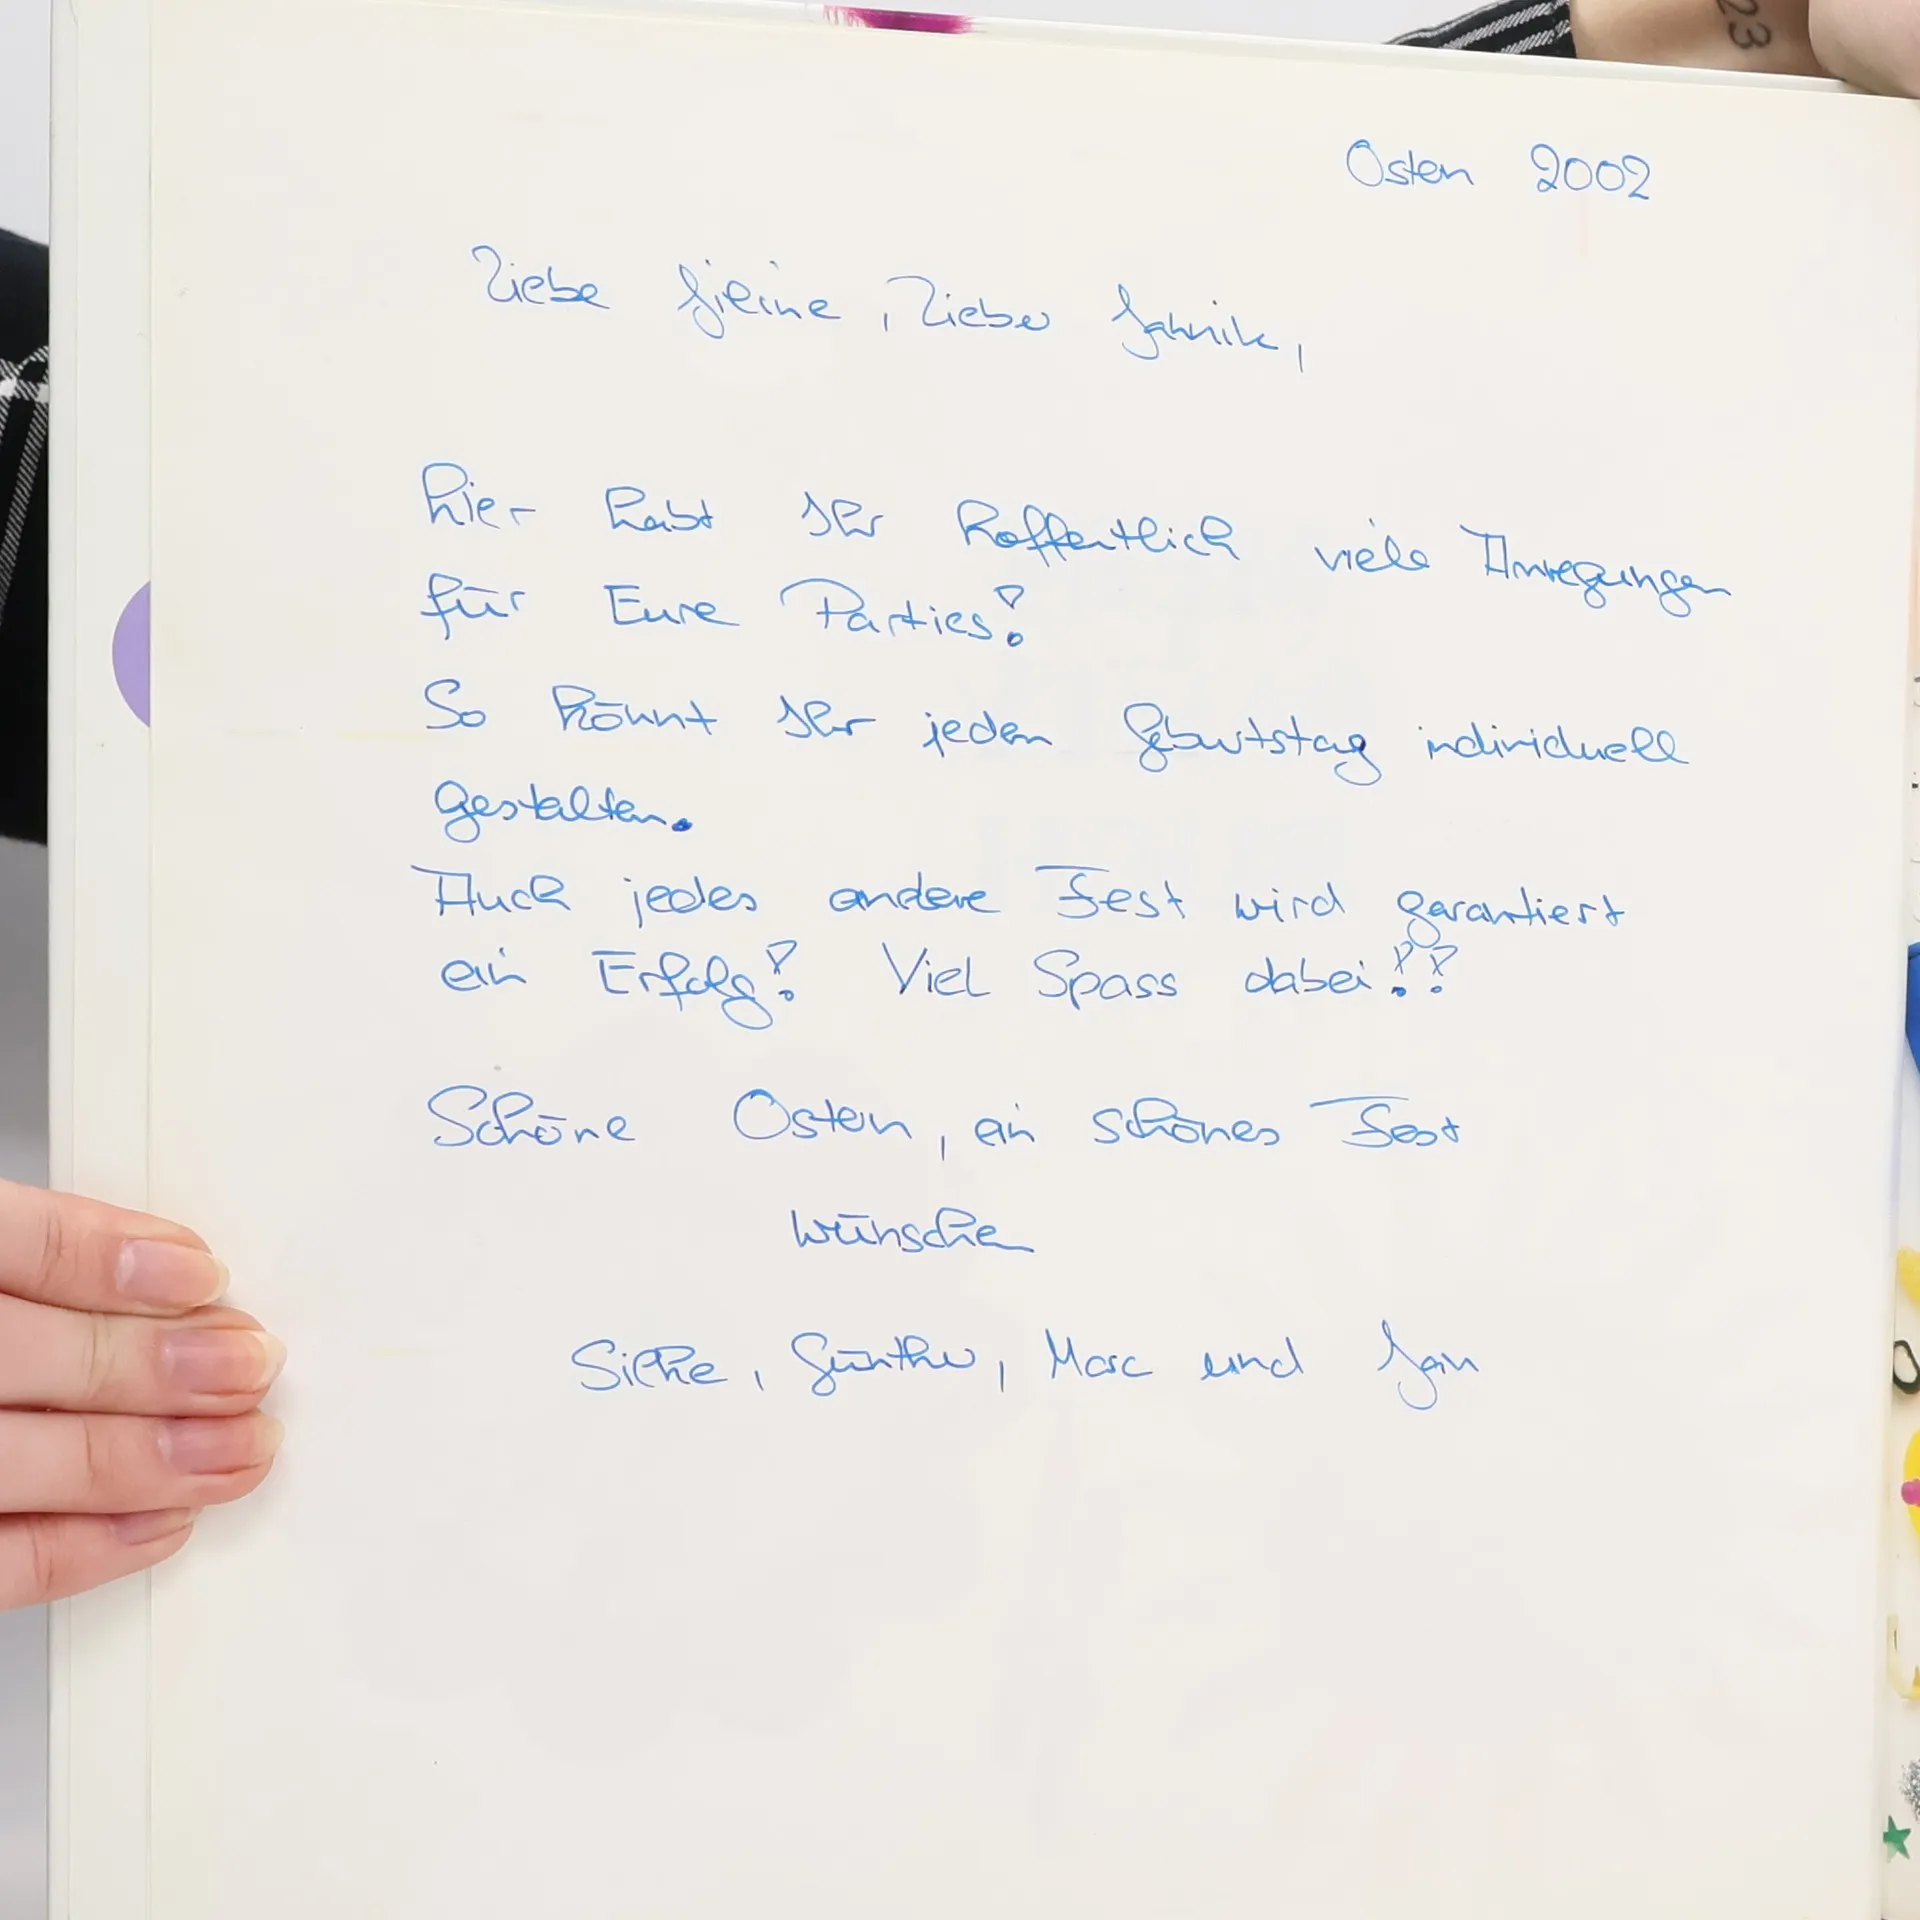 23
Ostern 2002
Liebe Jeline, Lieber Jannik,
hier habt Ihr hoffentlich viele Anregungen
für Eure Parties!
So könnt Ihr jeden Geburtstag individuell
gestalten.
Auch jedes andere Fest wird garantiert
ein Erfolg! Viel Spass dabei!!
Schöne Ostern, ein schönes Fest
wünschen
Silke, Günther, Marc und Jan